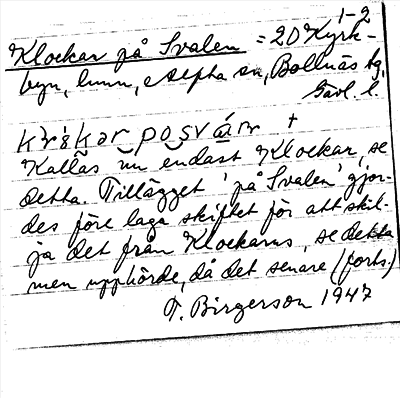 1-2
Klockar på Svalen = 20 Kyrk-
byn, hmn, Alfta sn, Bollnäs tg,
Gävl. l.
Kallas nu endast Klockar, se
detta. Tillägget 'på Svalen' gjor-
des före laga skiftet för att skil-
ja det från Klockarns, se detta
men upphörde, då det senare (forts.)
T. Birgerson 1947